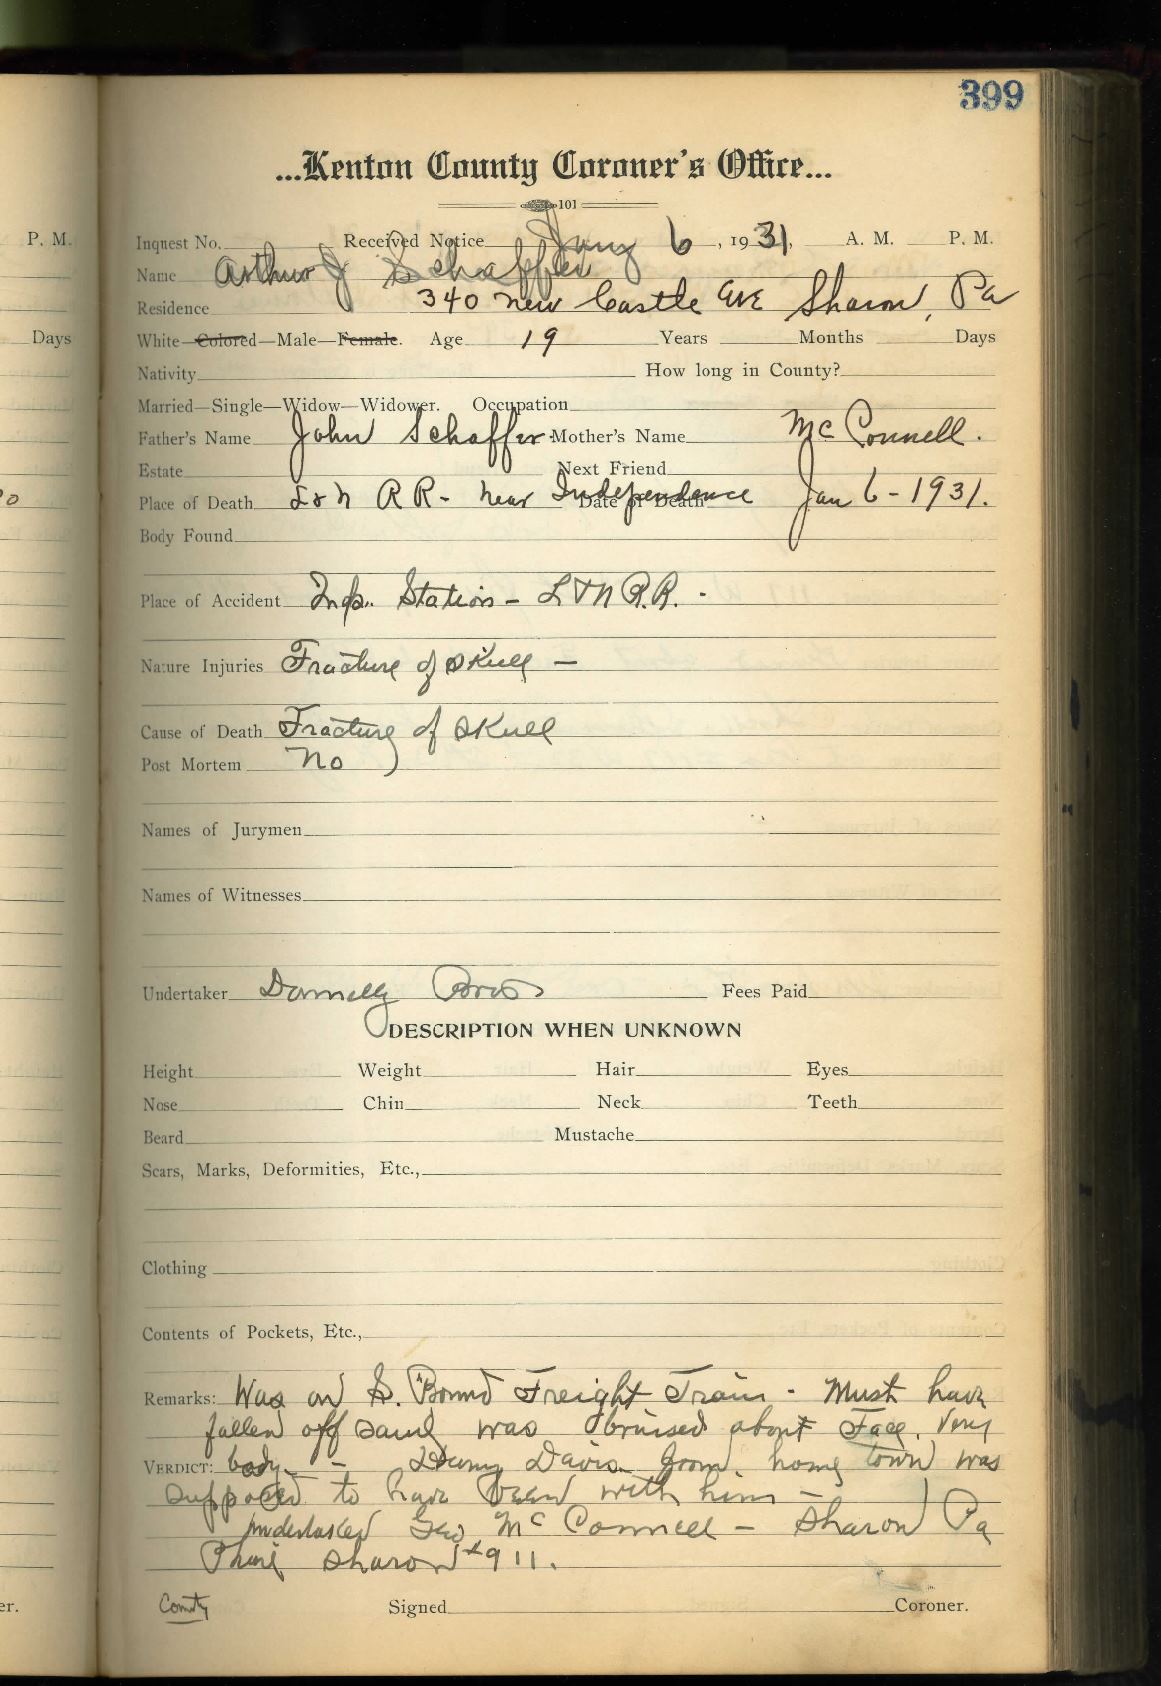 399
...Kenton County Coroner's Office...
101
P. M.
Inquest No. Received Notice Jany 6, 1931, A. M. P. M.
Name Arthur J Schaffer
Residence 340 New Castle Ave Sharon, Pa
Days
White—Colored—Male—Female. Age 19 Years Months Days
Nativity How long in County?
Married—Single—Widow—Widower. Occupation
Father's Name John Schaffer Mother's Name McConnell.
Estate Next Friend
Place of Death L & N RR - near Independence Date of Death Jan 6 - 1931.
Body Found
Place of Accident Indp. Station - L & N R.R. -
Nature Injuries Fracture of Skull —
Cause of Death Fracture of Skull
Post Mortem No
Names of Jurymen
Names of Witnesses
Undertaker Donnelly Bros Fees Paid
DESCRIPTION WHEN UNKNOWN
Height Weight Hair Eyes
Nose Chin Neck Teeth
Beard Mustache
Scars, Marks, Deformities, Etc.,
Clothing
Contents of Pockets, Etc.,
Remarks: Was on S. Bound Freight Train - Must have
fallen off same was bruised about Face, very
VERDICT: body - - Davis from home town was
supposed to have been with him -
undertaker Geo McConnell - Sharon Pa
Phone Sharon 911.
County
er. Signed Coroner.